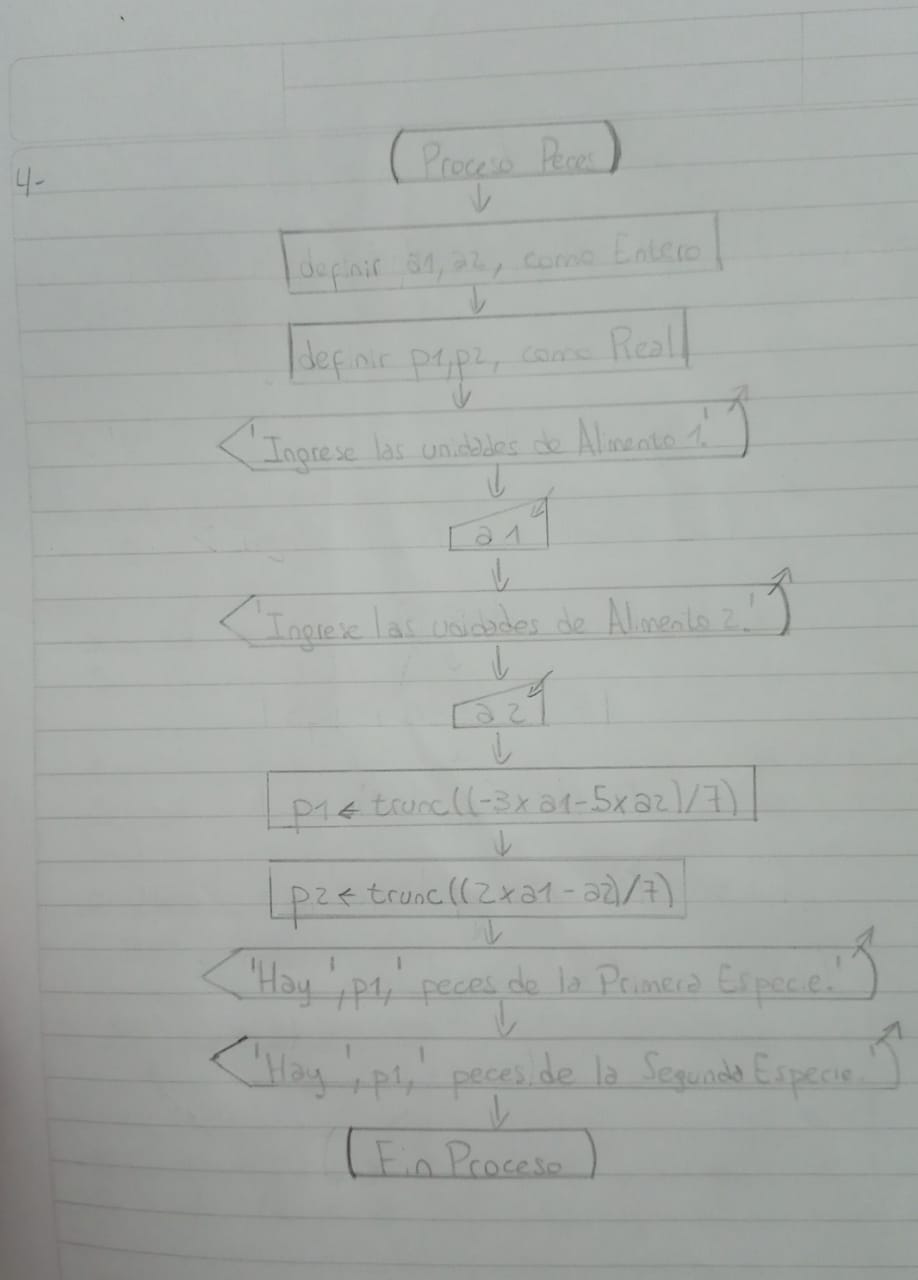 4-
Proceso Peces
definir a1, a2, como Entero
definir p1, p2, como Real
'Ingrese las unidades de Alimento 1.'
a1
'Ingrese las unidades de Alimento 2.'
a2
p1 ← trunc((-3xa1-5xa2)/7)
p2 ← trunc((2xa1-a2)/7)
'Hay', p1, ' peces de la Primera Especie.'
'Hay', p1, ' peces de la Segunda Especie.'
Fin Proceso